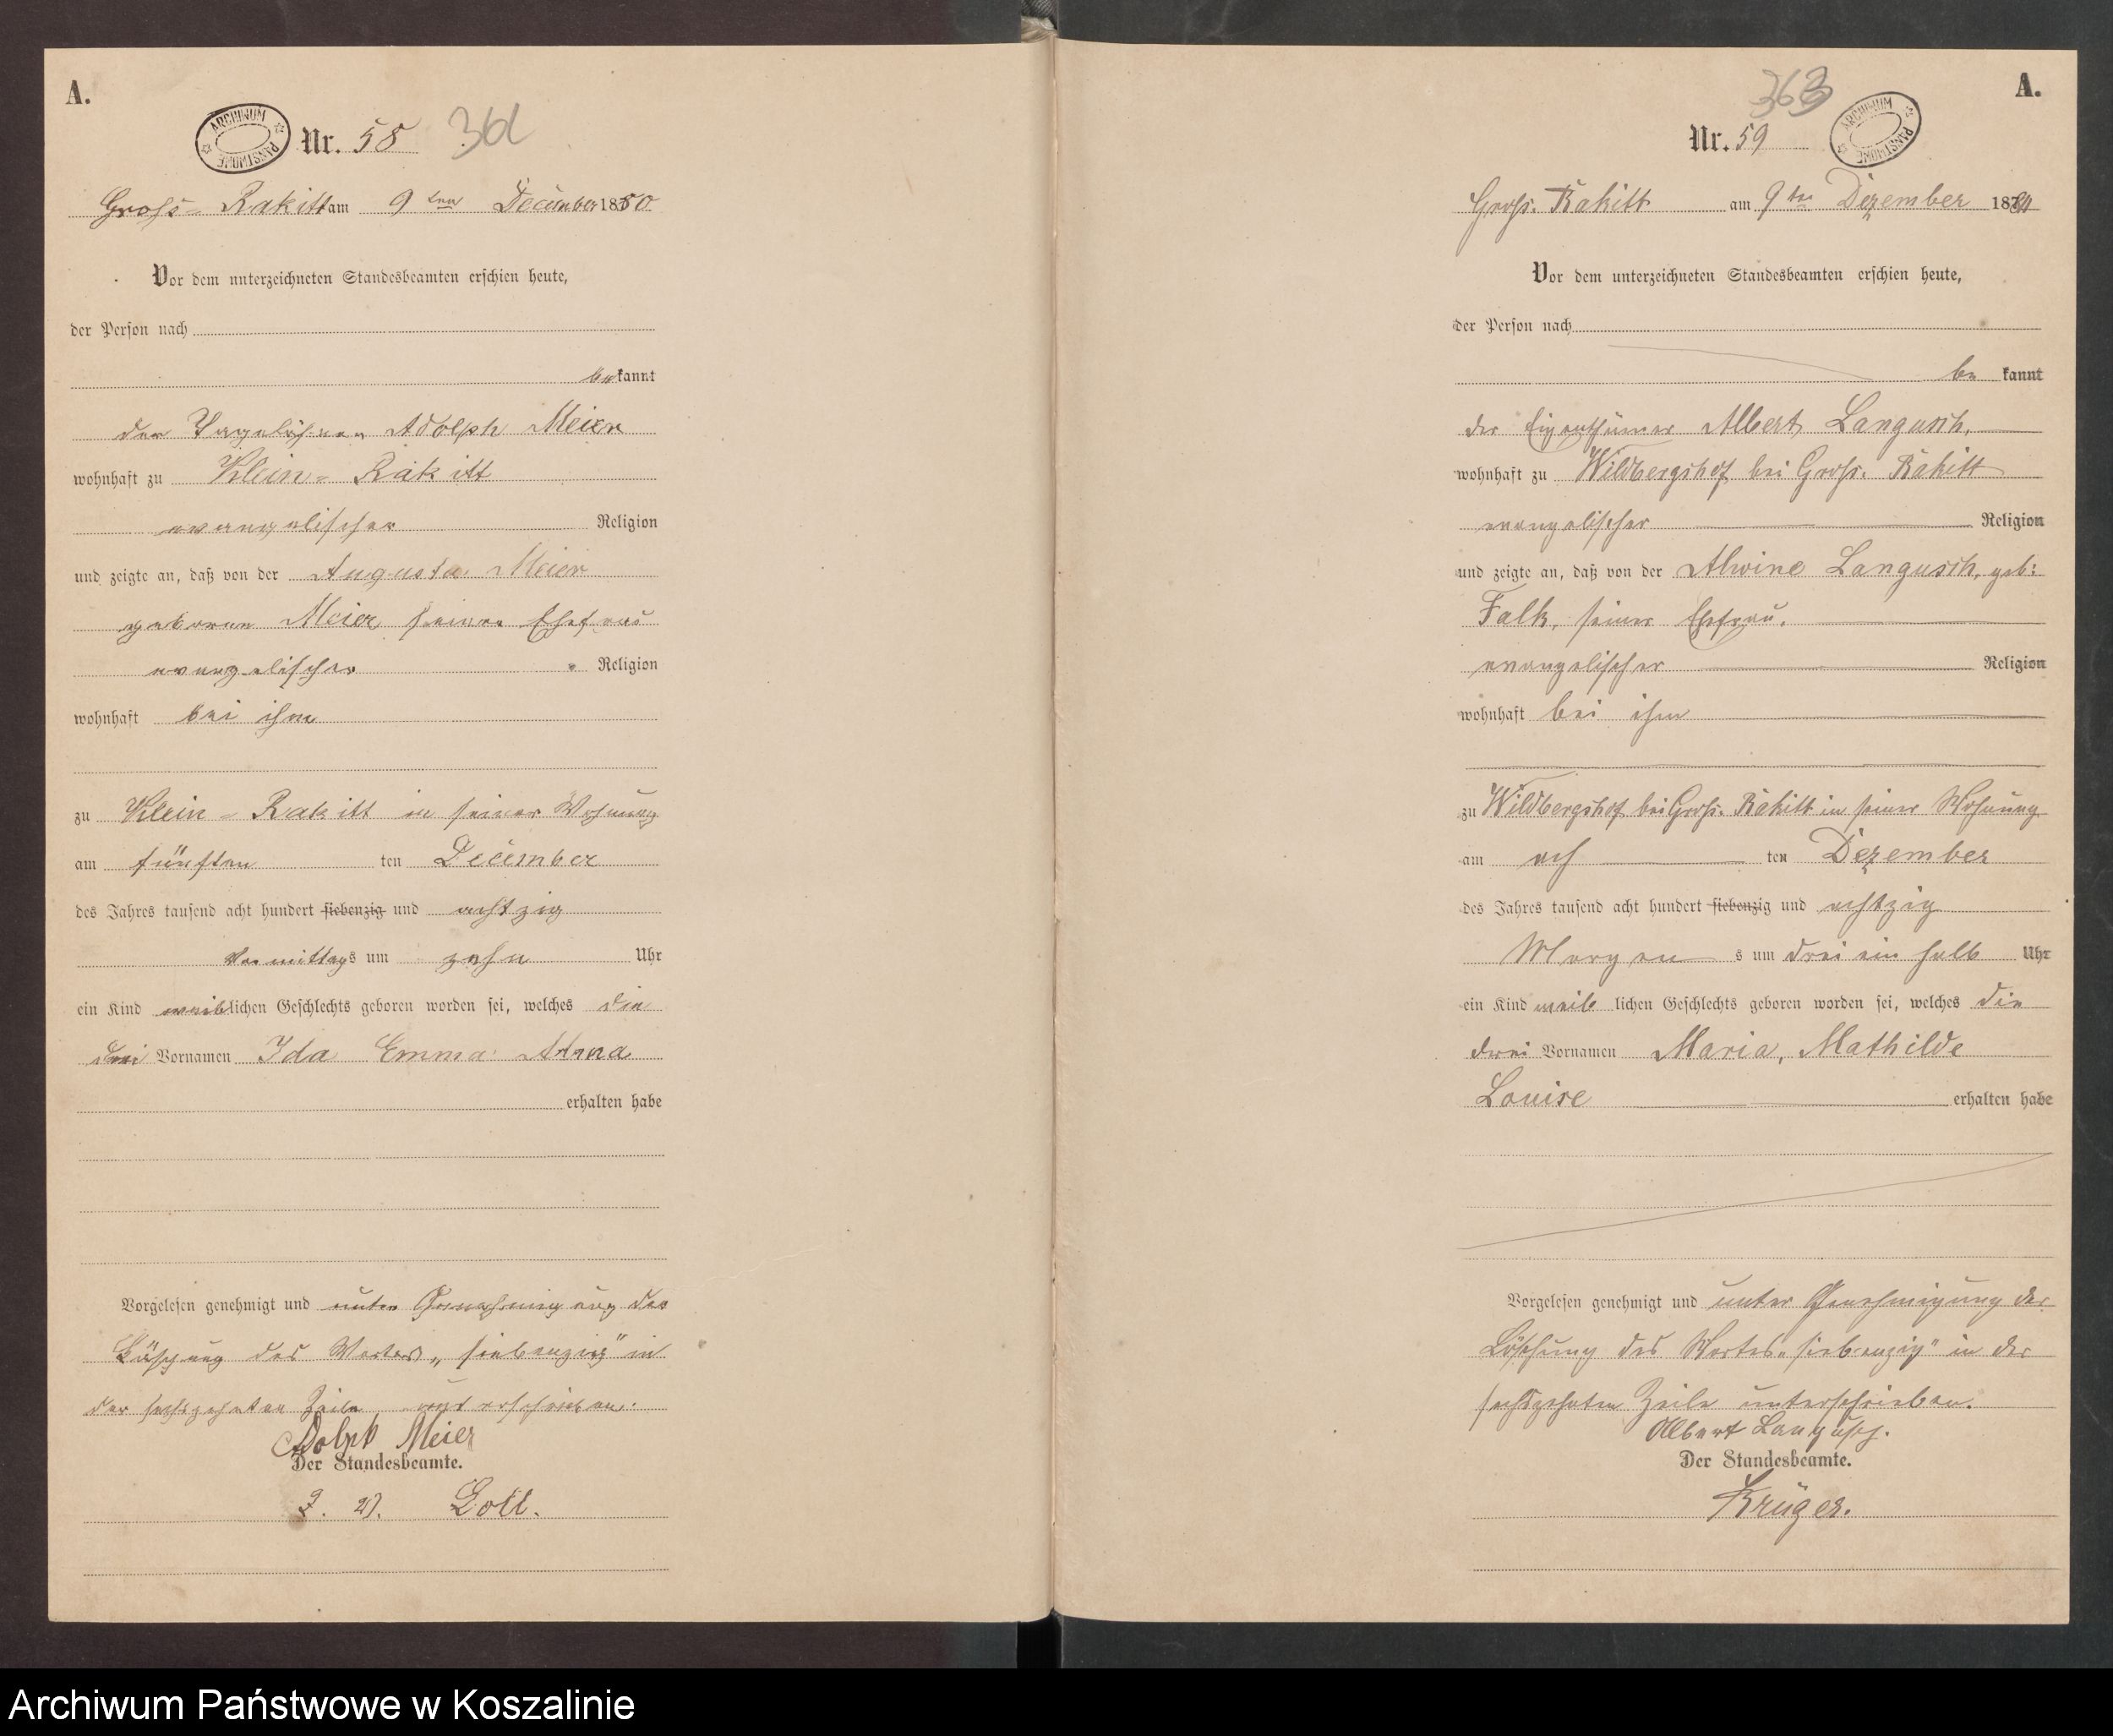 A.
ARCHIWUM PAŃSTWOWE
Nr. 58
Gross- Rakitt am 9 ten December 1880
Vor dem unterzeichneten Standesbeamten erschien heute,
der Person nach
bekannt
der Tagelöhner Adolph Meier
wohnhaft zu Klein- Rakitt
evangelischer Religion
und zeigte an, daß von der Auguste Meier
geborene Meier seiner Ehefrau
evangelischer Religion
wohnhaft bei ihm
zu Klein- Rakitt in seiner Wohnung
am fünften ten December
des Jahres tausend acht hundert siebenzig und achtzig
Vormittags um zehn Uhr
ein Kind weiblichen Geschlechts geboren worden sei, welches die
drei Vornamen Ida Emma Anna
erhalten habe
Vorgelesen genehmigt und unter Genehmigung der
Löschung des Wortes „siebenzig" in
der sechszehnten Zeile unterschrieben.
Adolph Meier
Der Standesbeamte.
J. V. Goll.
A.
363
ARCHIWUM PAŃSTWOWE
Nr. 59
Gross- Rakitt am 9 ten Dezember 1880
Vor dem unterzeichneten Standesbeamten erschien heute,
der Person nach
be kannt
der Eigenthümer Albert Langusch,
wohnhaft zu Wildbergshof bei Gross- Rakitt
evangelischer Religion
und zeigte an, daß von der Alwine Langusch, geb:
Falk, seiner Ehefrau,
evangelischer Religion
wohnhaft bei ihm
zu Wildbergshof bei Gross- Rakitt in seiner Wohnung
am ach ten Dezember
des Jahres tausend acht hundert siebenzig und achtzig
Morgen s um drei ein halb Uhr
ein Kind weib lichen Geschlechts geboren worden sei, welches die
drei Vornamen Maria, Mathilde
Louise erhalten habe
Vorgelesen genehmigt und unter Genehmigung der
Löschung des Wortes „siebenzig" in der
sechszehnten Zeile unterschrieben.
Albert Langusch.
Der Standesbeamte.
Krüger.
Archiwum Państwowe w Koszalinie